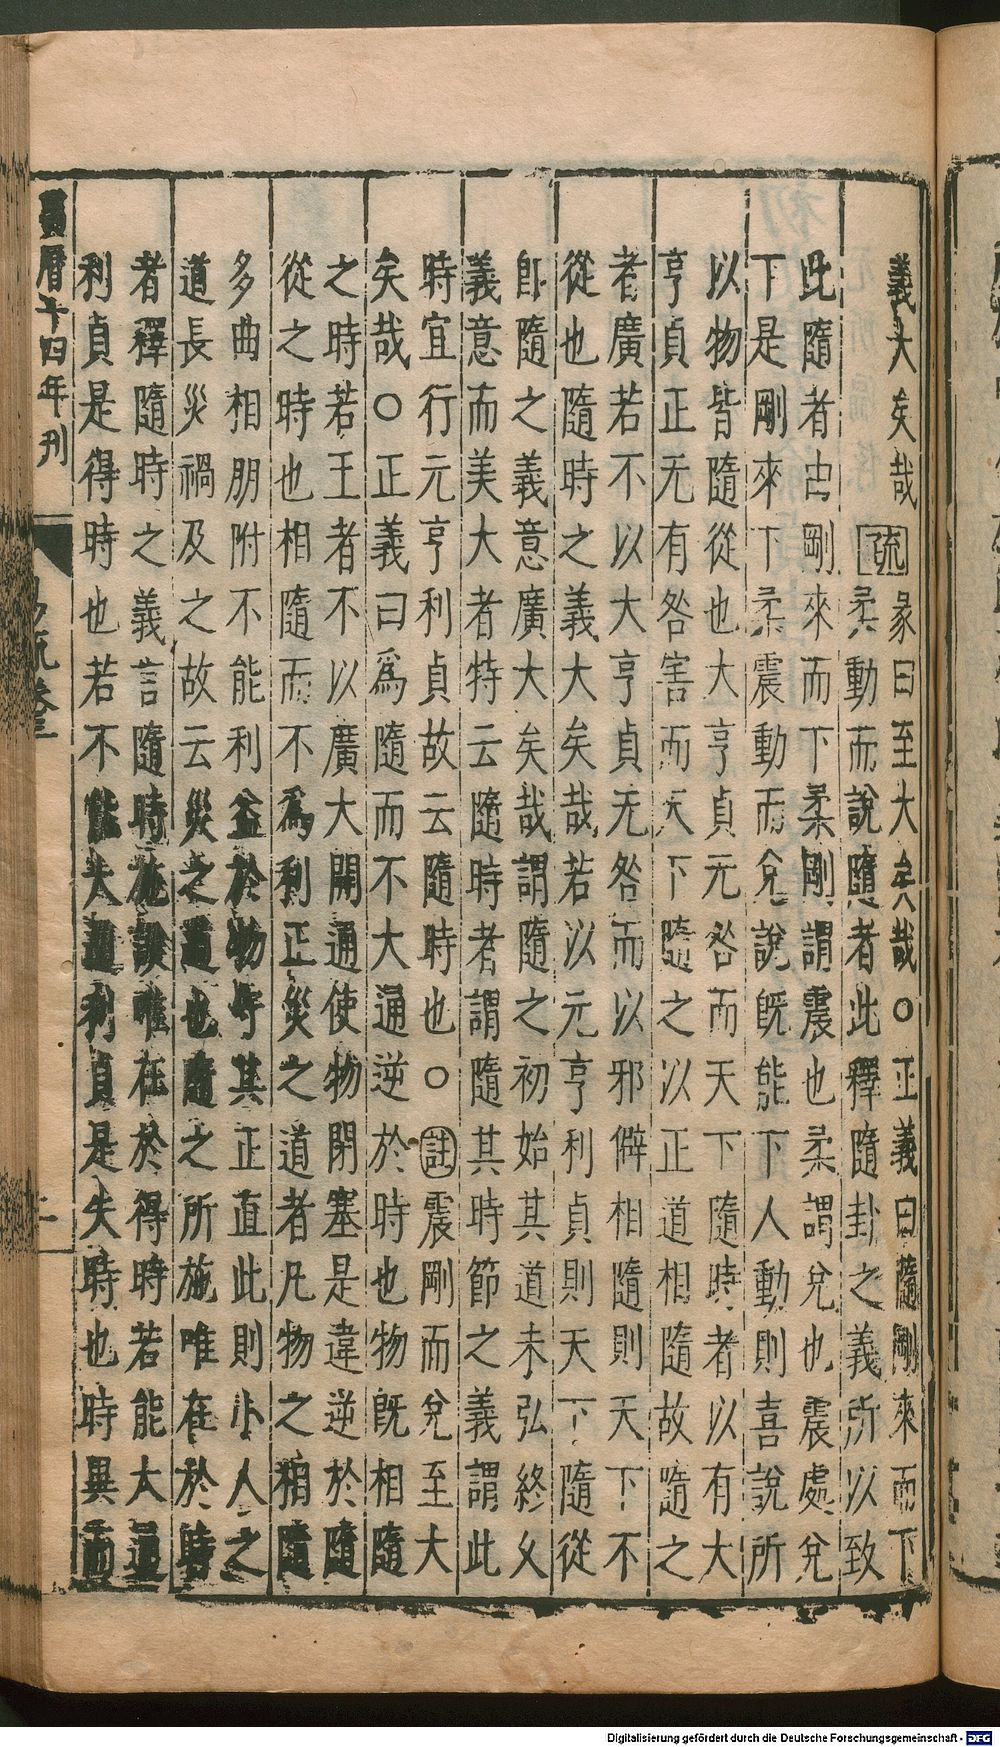 義大矣哉 疏 彖曰至大矣哉○正義曰隨剛來而下
柔動而說隨者此釋隨卦之義所以致
此隨者由剛來而下柔剛謂震也柔謂兌也震處兌
下是剛來下柔震動而兌說既能下人動則喜說所
以物皆隨從也大亨貞无咎而天下隨時者以有大
亨貞正无有咎害而天下隨之以正道相隨故隨之
者廣若不以大亨貞无咎而以邪僻相隨則天下不
從也隨時之義大矣哉若以元亨利貞則天下隨從
卽隨之義意廣大矣哉謂隨之初始其道未弘終乆
義意而美大者特云隨時者謂隨其時節之義謂此
時宜行元亨利貞故云隨時也○註震剛而兌至大
矣哉○正義曰爲隨而不大通逆於時也物旣相隨
之時若王者不以廣大開通使物閉塞是違逆於隨
從之時也相隨而不爲利正災之道者凡物之相隨
多曲相朋附不能利益於物守其正直此則小人之
道長災禍及之故云災之道也隨之所施唯在於時
者釋隨時之義言隨時施設唯在於得時若能大通
利貞是得時也若不能大通利貞是失時也時異而
萬曆十四年刊
易疏卷三
二
Digitalisierung gefördert durch die Deutsche Forschungsgemeinschaft - DFG